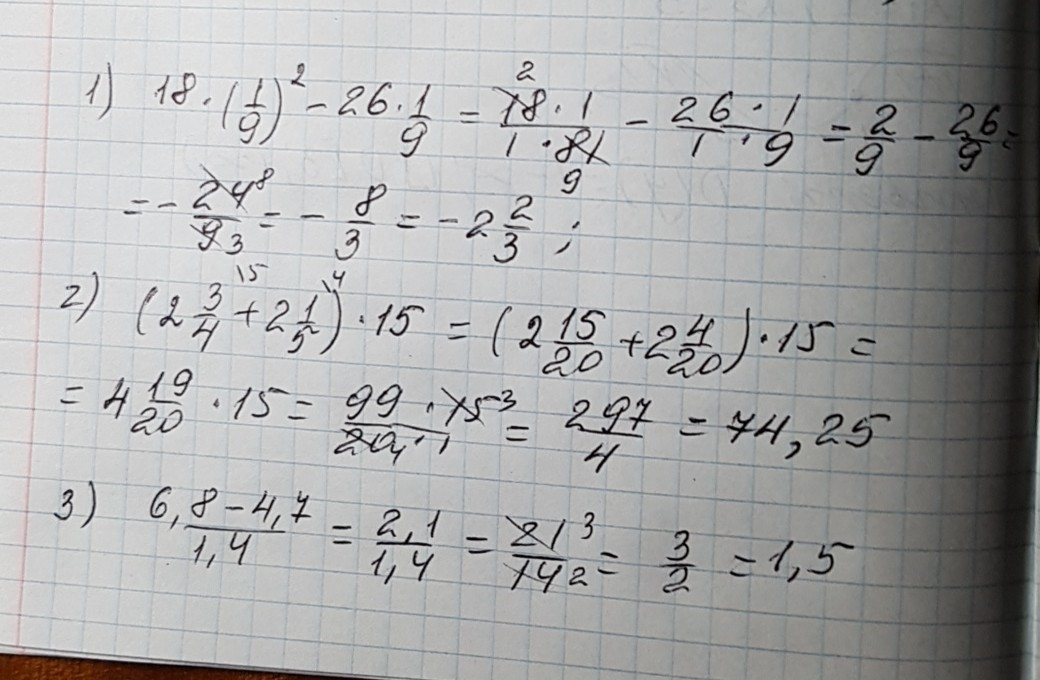 1) 18·(1/9)² − 26·1/9 = 18·1/1·81 − 26·1/1·9 = 2/9 − 26/9 =
= − 24/9 = − 8/3 = −2 2/3 ;
2) (2 3/4 + 2 1/5)·15 = (2 15/20 + 2 4/20)·15 =
= 4 19/20 · 15 = 99·15/20·1 = 297/4 = 74,25
3) 6,8−4,7/1,4 = 2,1/1,4 = 21/14 = 3/2 = 1,5